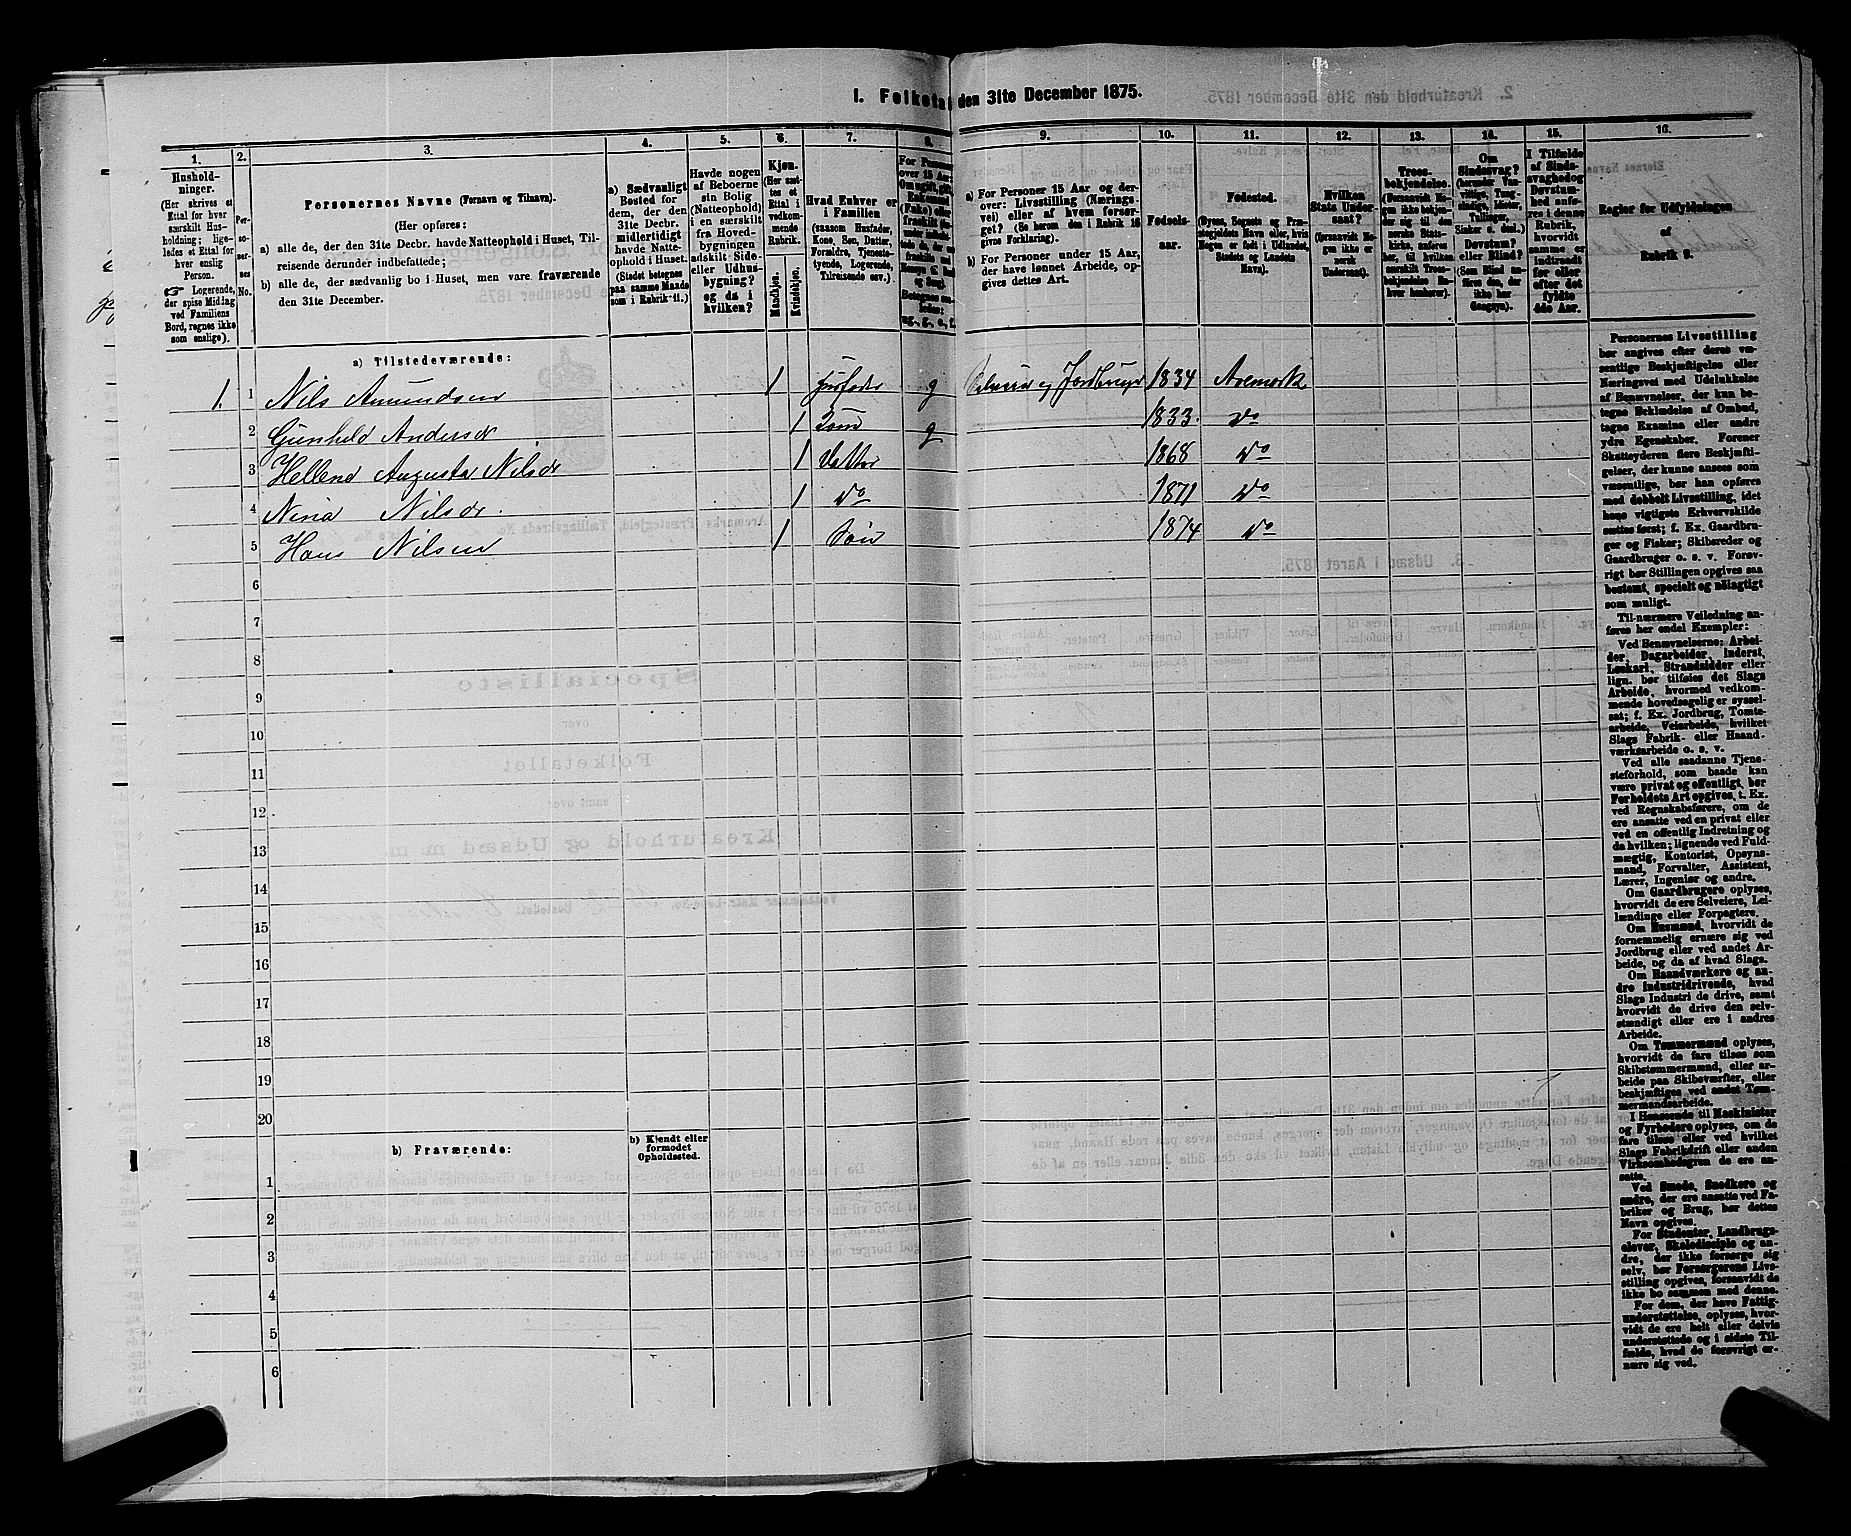 I. Folketal den 31te December 1875.
1.
2.
3.
4.
5.
6.
7.
8.
9.
10.
11.
12.
13.
14.
15.
16.
Hushold-
ninger.
(Her skrives et
Ettal for hver
særskilt Hus-
holdning; lige-
ledes et Ettal for
hver enslig
Person.
☞ Logerende,
der spise Middag
ved Familiens
Bord, regnes ikke
som enslige).
Per-
so-
ner-
nes
No.
Personernes Navne (Fornavn og Tilnavn).
(Her opføres:
a) alle de, der den 31te Decbr. havde Natteophold i Huset, Til-
reisende derunder indbefattede;
b) alle de, der sædvanlig bo i Huset, men vare fraværende
den 31te December.
a) Sædvanligt
Bosted for
dem, der den
31te Decbr.
midlertidigt
havde Natte-
ophold i Huset.
(Stedet betegnes
paa samme Maade
som i Rubrik 11.)
Havde nogen
af Beboerne
sin Bolig
(Natteophold)
i en særskilt
fra Hoved-
bygningen
adskilt Side-
eller Udhus-
bygning?
og da i
hvilken?
Kjøn.
(Her sæt-
tes et
Ettal i
vedkom-
mende
Rubrik.
Mandkjøn.
Kvindekjøn.
Hvad Enhver er
i Familien
(saasom Husfader,
Kone, Søn, Datter,
Forældre, Tjeneste-
tyende, Logerende,
Tilreisende osv.)
a) For Personer 15 Aar og der-
over: Livsstilling (Nærings-
vei) eller af hvem forsør-
get? (Se herom den i Rubrik 16
givne Forklaring).
b) For Personer under 15 Aar,
der have lønnet Arbeide, op-
gives dettes Art.
Fødsels-
aar.
Fødested.
(Byens, Sognets og Præ-
stegjeldets Navn eller, hvis
Nogen er født i Udlandet,
Stedets og Landets
Navn).
Hvilken
Stats Under-
saat?
(forsaavidt No-
gen ikke er
norsk
Undersaat).
Troes-
bekjendelse.
(Forsaavidt No-
gen ikke bekjen-
der sig til den
norske Stats-
kirke, anføres
her, til hvilken
særskilt Troes-
bekjendelse En-
hver henhører).
Om
Sindssvag?
Døvstum?
eller Blind?
(Som Blind an-
føres den, der
ikke har
Gangsyn).
I Tilfælde
af Sinds-
svaghed og
Døvstum-
hed anfø-
res i denne
Rubrik,
hvorvidt
samme er
indtraadt
før eller
efter det
fyldte
4de Aar.
Regler for Udfyldningen
af
Rubrik 9.
a) Tilstedeværende:
1. 1 Nils Amundsen 1 Husfader g Selveier og Jordbruger 1834 Aremark
2 Gunhild Andersdr 1 Kone g 1833. do
3 Hellene Augusta Nilsdr 1 Datter 1868 do
4 Nina Nilsdr. 1 do 1871 do
5 Hans Nilsen 1 Søn 1874 do
6
7
8
9
10
11
12
13
14
15
16
17
18
19
20
b) Fraværende:
b) Kjendt eller
formodet
Opholdssted.
1
2
3
4
5
6
Personernes Livsstilling
bør angives efter deres væ-
sentlige Beskjæftigelse eller
Næringsvei med Udelukkelse
af Benævnelser, der kun be-
tegne Beklædelse af Ombud,
tagne Examina eller andre
ydre Egenskaber. Forener
Skatteyderen flere Beskjæfti-
gelser, der kunne ansees som
væsentlige, bør han opføres
med dobbelt Livsstilling, idet
hans vigtigste Erhvervskilde
sættes først; f. Ex. Gaardbru-
ger og Fisker; Skibsreder og
Gaardbruger o. s. v. Forøv-
rigt bør Stillingen opgives saa
bestemt, specielt og nøiagtigt
som muligt.
Til nærmere Veiledning an-
føres her endel Exempler:
Ved Benævnelserne: Arbei-
der, Dagarbeider, Inderst,
Løskarl, Strandsidder eller
lign. bør tilføies det Slags
Arbeide, hvormed vedkom-
mende hovedsagelig er syssel-
sat; f. Ex. Jordbrug, Tomte-
arbeide, Veiarbeide, hvilket
Slags Fabrik- eller Haand-
værksarbeide o. s. v.
Ved alle saadanne Tjene-
steforhold, som baade kan
være privat og offentligt, bør
Forholdets Art opgives, t. Ex.
ved Regnskabsførere, om de
ere ansatte ved en privat eller
ved en offentlig Indretning og
da hvilken; lignende ved Fuld-
mægtig, Kontorist, Opsyns-
mand, Forvalter, Assistent,
Lærer, Ingeniør og andre.
Om Gaardbrugere oplyses,
hvorvidt de ere Selveiere, Lei-
lændinge eller Forpagtere.
Om Husmænd, hvorvidt de
fornemmelig ernære sig ved
Jordbrug eller ved andet Ar-
beide, og da af hvad Slags.
Om Haandværkere og an-
dre Industridrivende, hvad
Slags Industri de drive, samt
hvorvidt de drive den selv-
stændigt eller ere i andres
Arbeide.
Om Tømmermænd oplyses,
hvorvidt de fare tilsøs som
Skibstømmermænd, eller ar-
beide paa Skibsværfter, eller
beskjæftiges ved andet Tøm-
mermandsarbeide.
I Henseende til Maskinister
og Fyrbødere oplyses, om de
fare tilsøs eller ved hvilket
Slags Fabrikdrift eller anden
Virksomhed de ere an-
satte.
Ved Smede, Snedkere og
andre, der ere ansatte ved Fa-
briker og Brug, bør dettes
Navn opgives.
For Studenter, Landbrugs-
elever, Skoledisciple og an-
dre, der ikke forsørge sig
selv, bør Forsørgerens Livs-
stilling opgives, forsaavidt de
ikke bo sammen med denne.
For dem, der have Fattig-
understøttelse, oplyses, hvor-
vidt de ere helt eller delvis
understøttede og i sidste Til-
fælde, hvad de forøvrigt er-
nære sig ved.